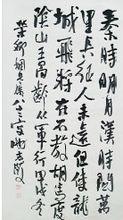 秦時明月漢時關萬
里長征人未還但使龍
城飛將在不教胡馬度
陰山王昌齡從軍行甲戌冬